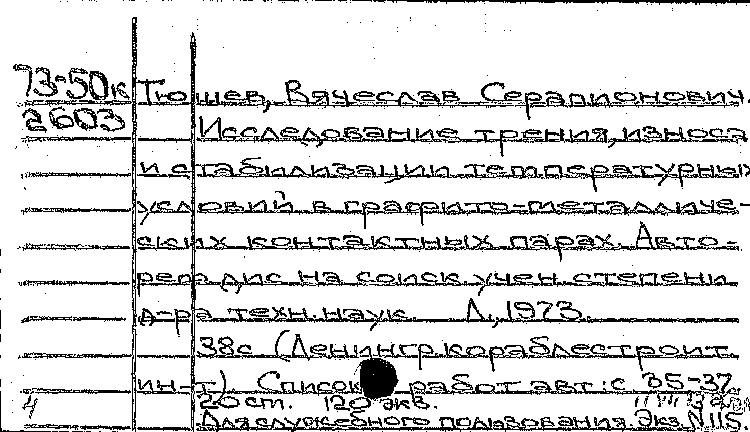 73-50к Тюшев, Вячеслав Серапионович.
2603 Исследование трения, износа
и стабилизации температурных
условий в графито-металличе-
ских контактных парах. Авто-
реф дис на соиск учен степени
д-ра техн. наук Л., 1973.
38с (Ленингр кораблестроит
ин-т). Список работ авт: с 35-37.
4 20 ст. 120 экз.
Для служебного пользования. Экз. N 115